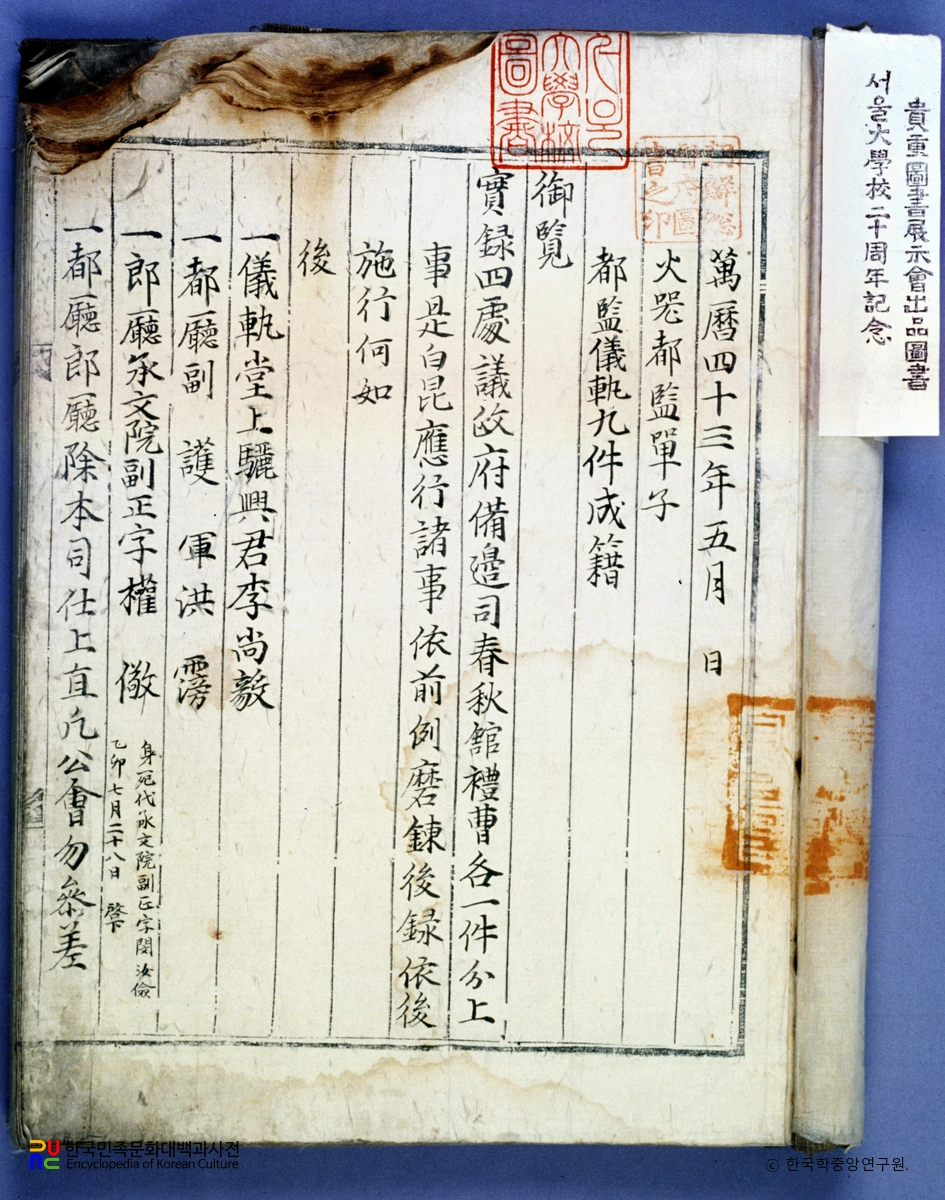 貴重圖書展示會出品圖書
서울大學校二十周年記念
萬曆四十三年五月 日
火器都監單子
都監儀軌九件成籍
御覽
實録四處議政府備邊司春秋館禮曹各一件分上
事是白昆應行諸事依前例磨鍊後録依後
施行何如
後
一儀軌堂上驪興君李尚毅
一都廳副護軍洪霶
一郎廳承文院副正字權儆
身死代承文院副正字閔汝儉
乙卯七月二十八日 啓下
一都廳郎廳除本司仕上直凡公會勿參差
서울大學校圖書
朝鮮總督府圖書之印
한국민족문화대백과사전
Encyclopedia of Korean Culture
© 한국학중앙연구원.